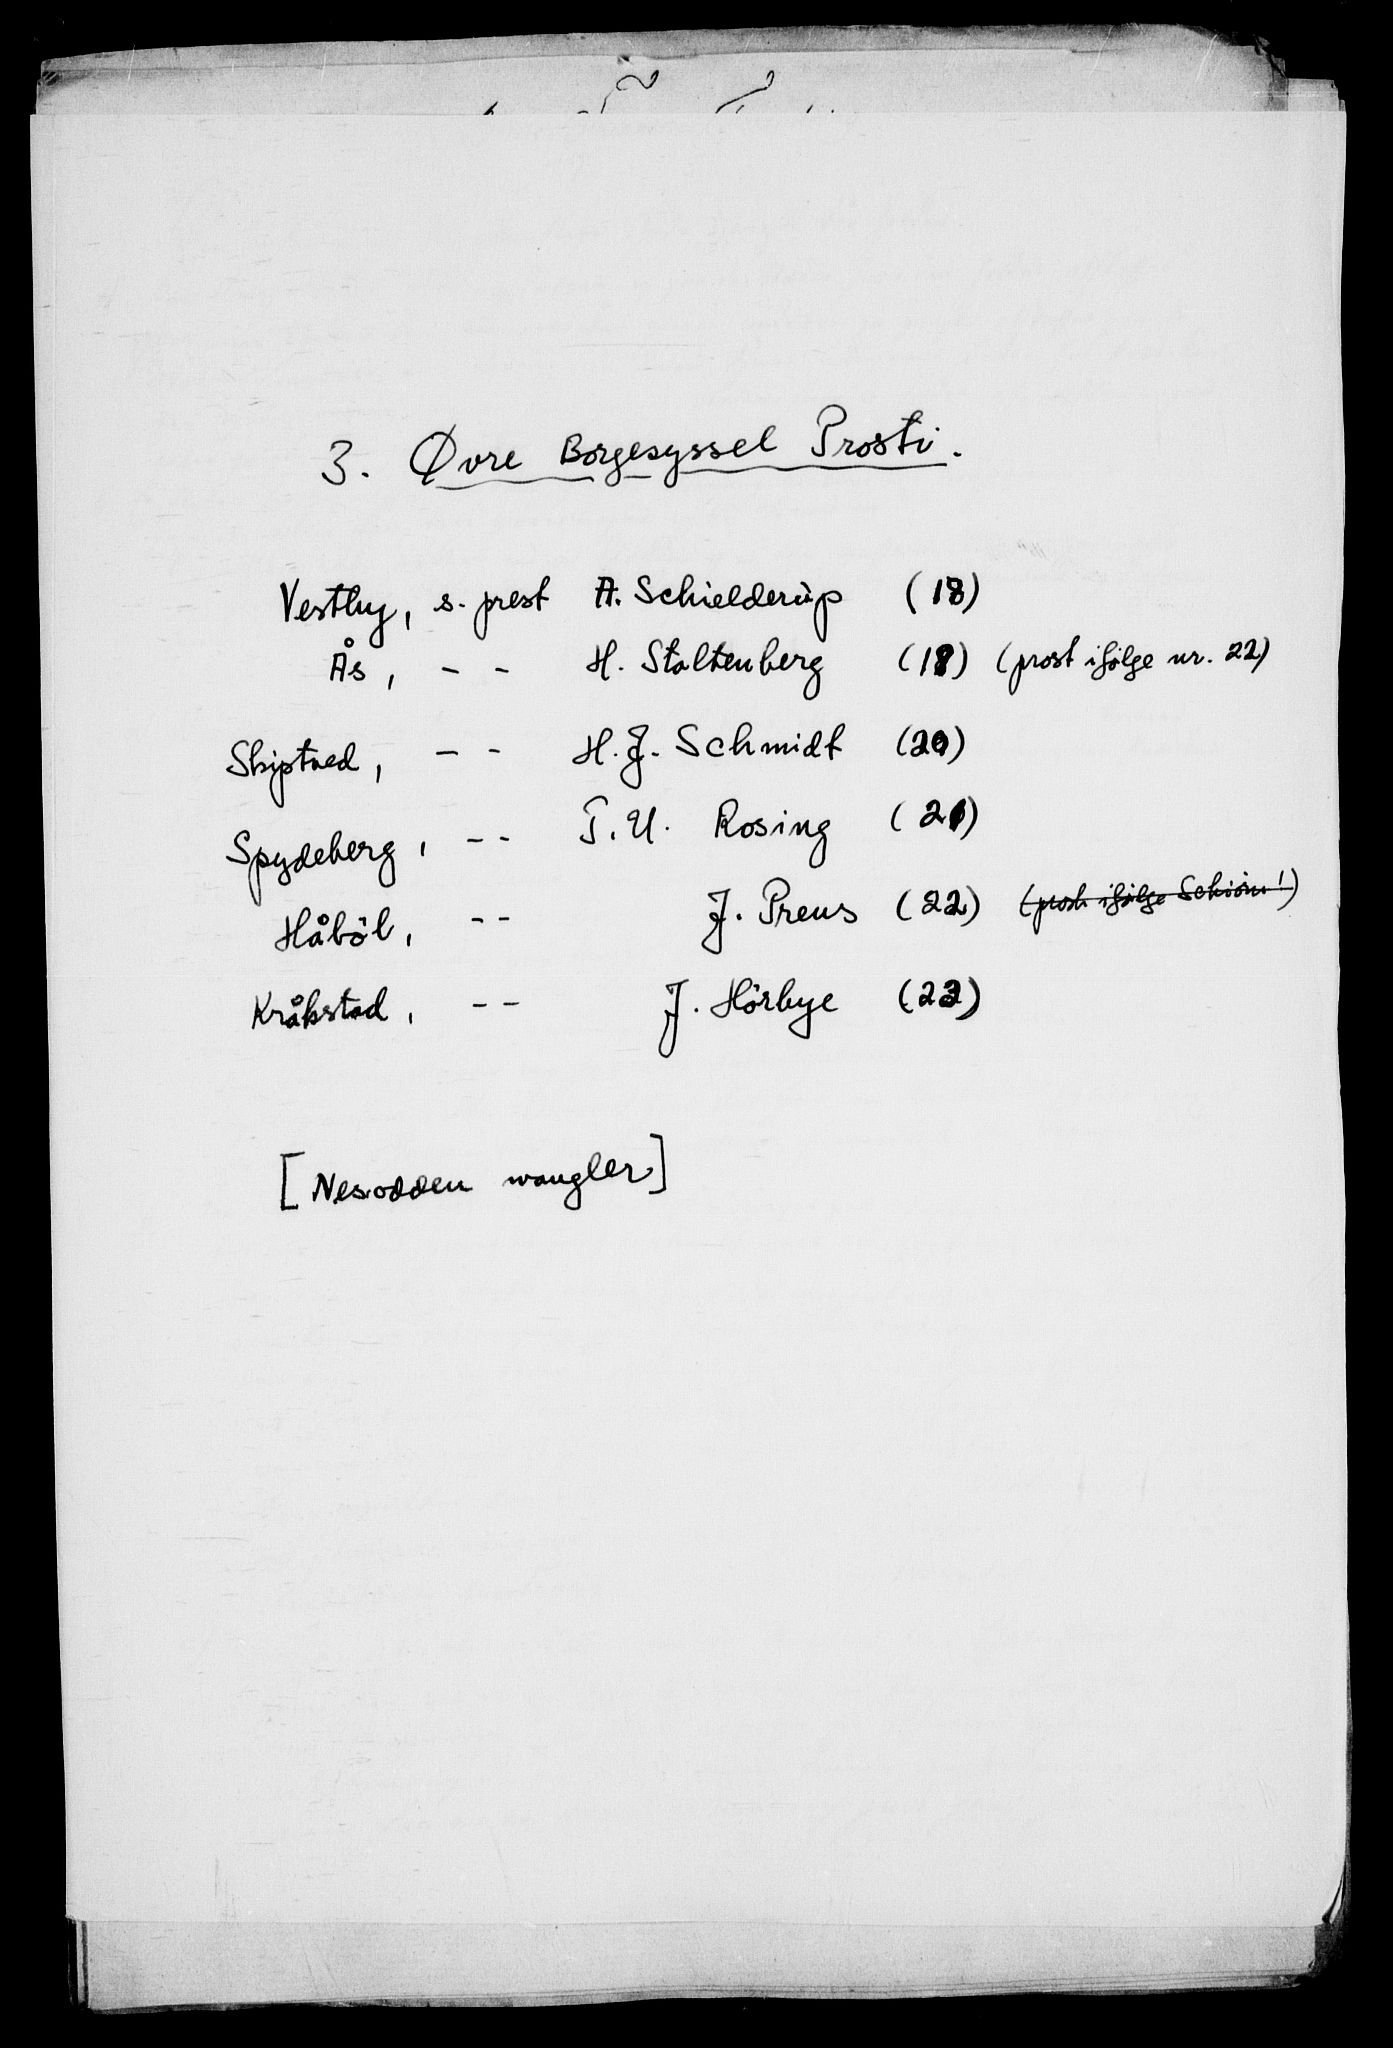 3. Øvre Borgesyssel Prosti.
Vestby, s. prest A. Schielderup (18)
Ås, - - H. Stoltenberg (18) (prost ifølge nr. 22)
Skiptved, - - H. J. Schmidt (20)
Spydeberg, - - T. U. Rosing (21)
Håböl, - - J. Preus (22) (prost ifølge Schiön!)
Kråkstad, - - J. Hörbye (23)
[Nesodden mangler]